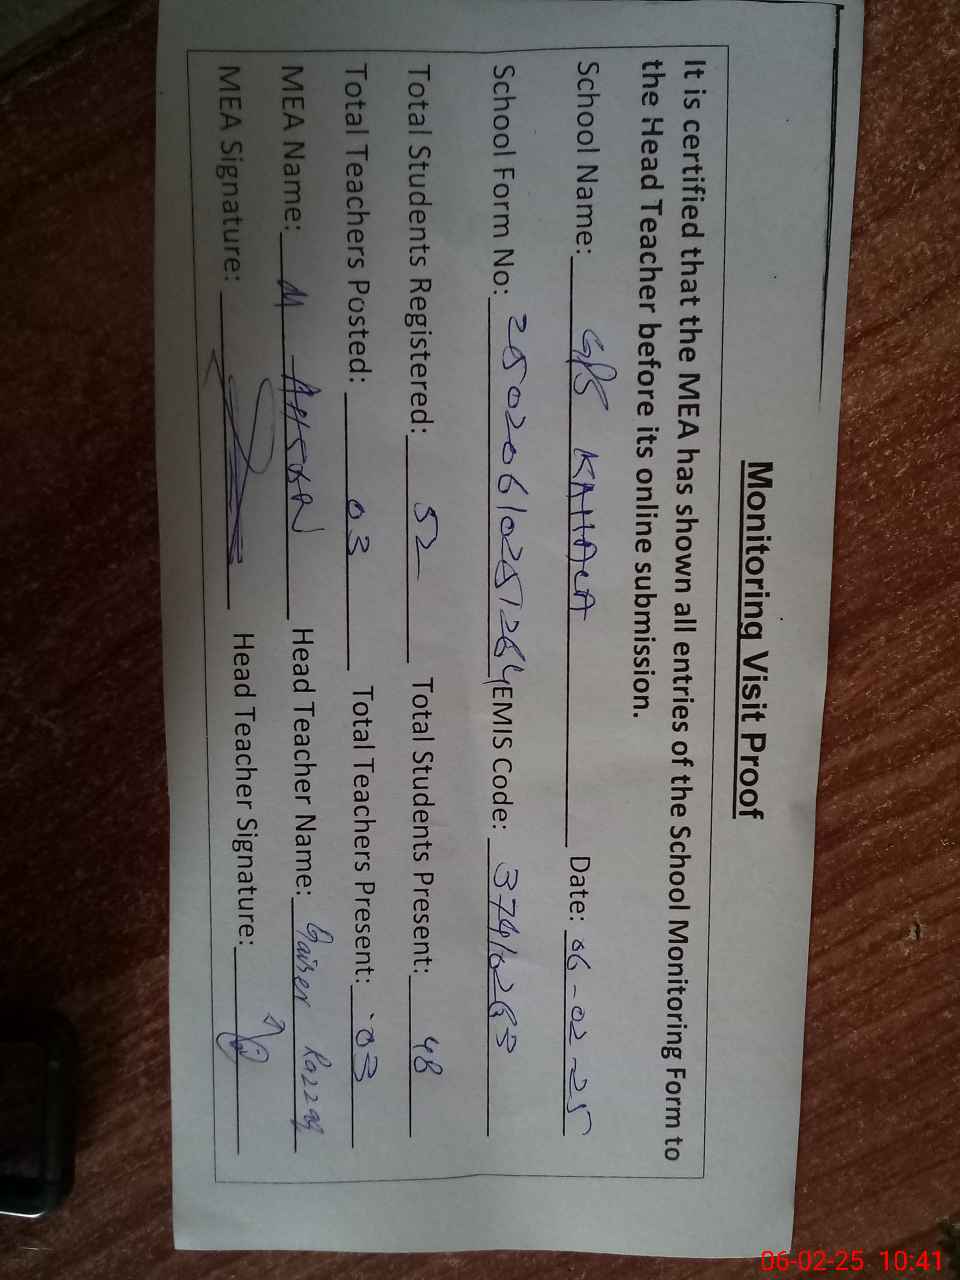 Monitoring Visit Proof
It is certified that the MEA has shown all entries of the School Monitoring Form to
the Head Teacher before its online submission.
School Name: GPS KAHACA Date: 06-02-25
School Form No: EMIS Code: 37416265
Total Students Registered: 52 Total Students Present: 48
Total Teachers Posted: 03 Total Teachers Present: 03
MEA Name: M AHSAN Head Teacher Name: Qaiser Razzaq
MEA Signature: Head Teacher Signature:
06-02-25 10:41